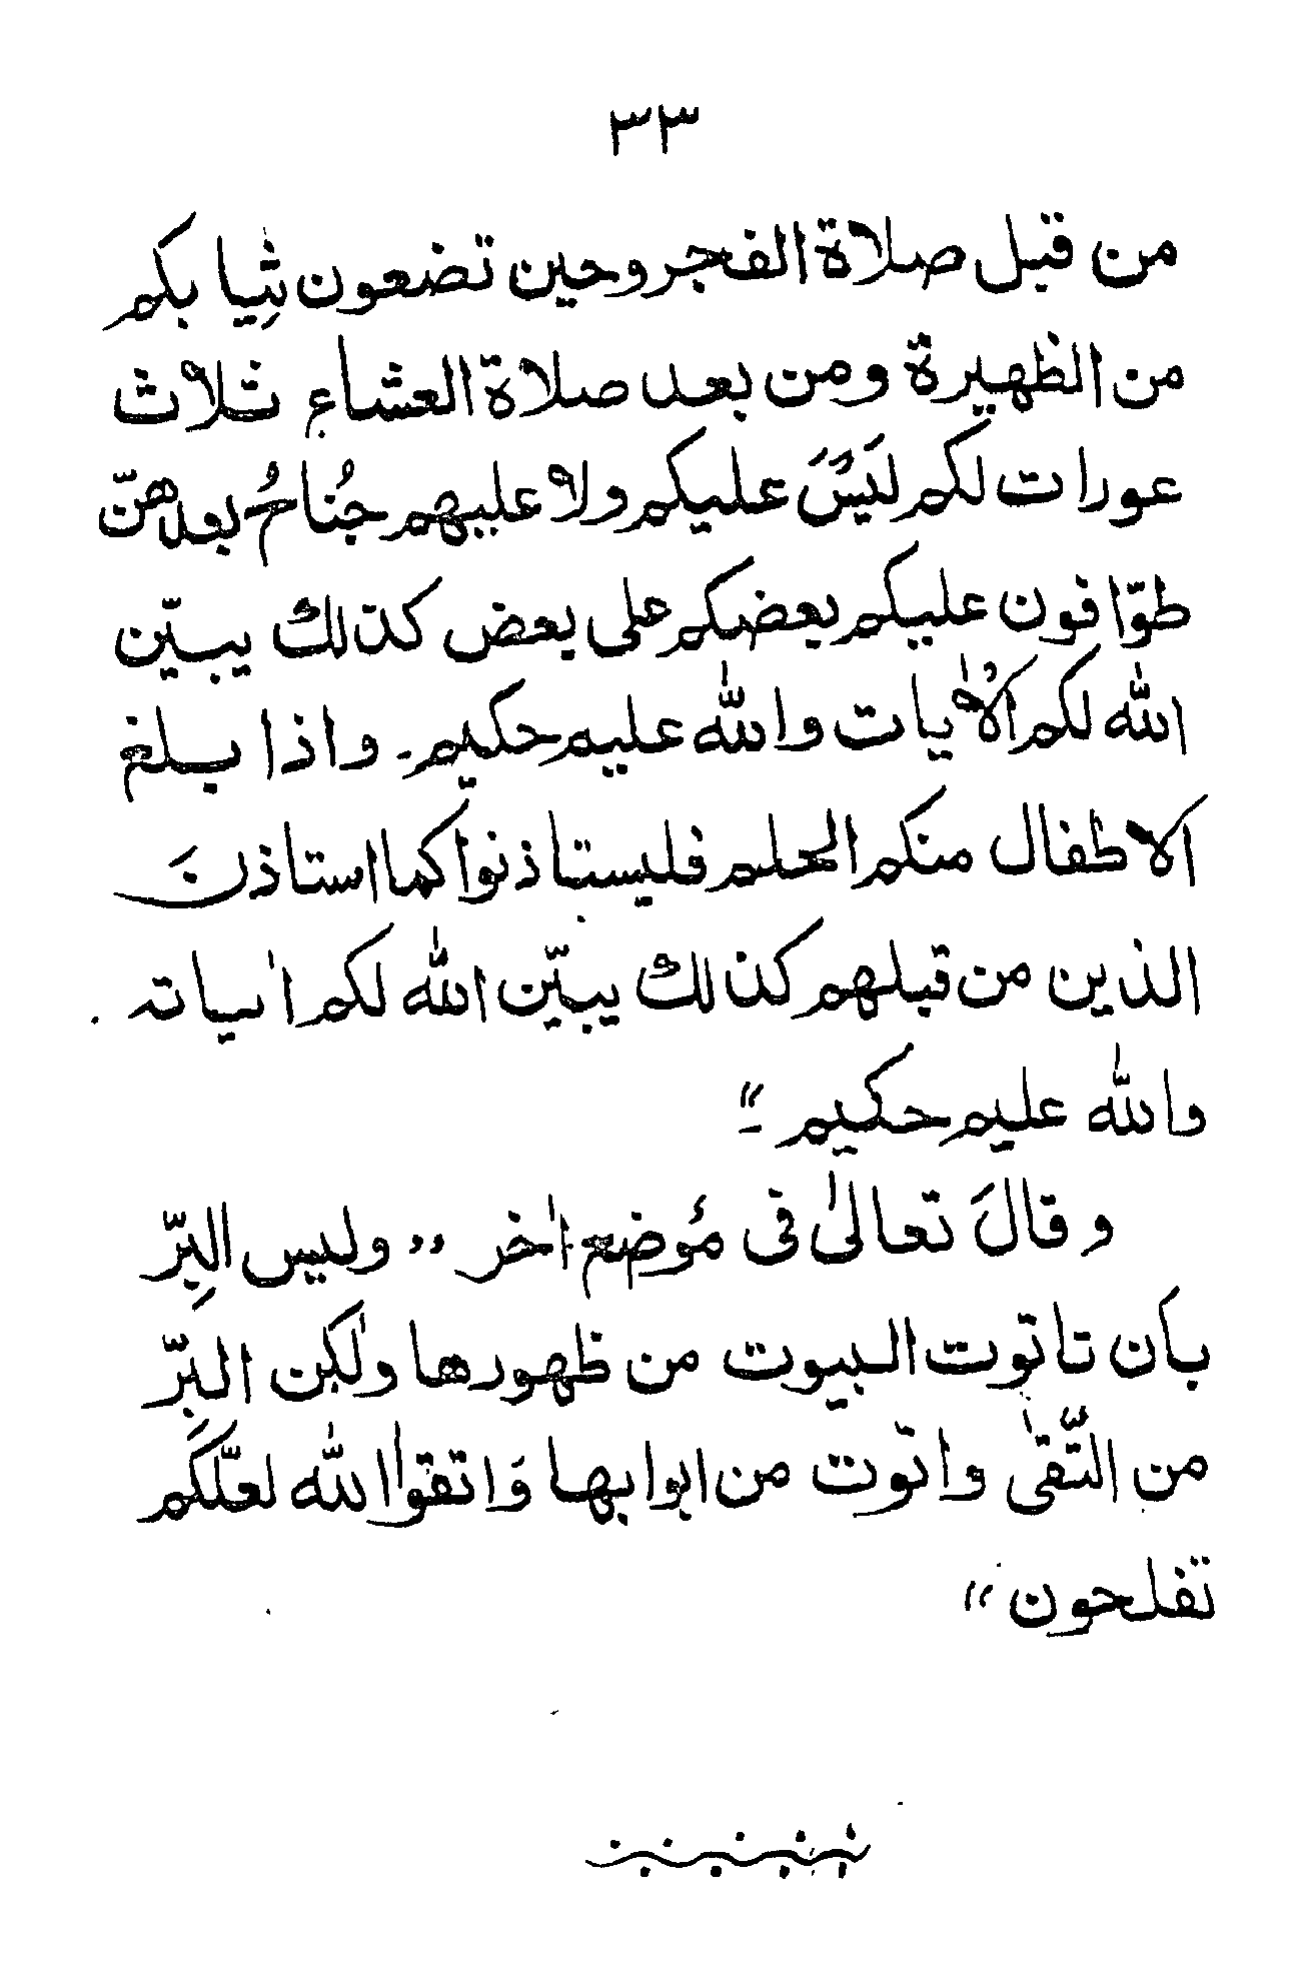 ٣٣
من قبل صلاة الفجر وحين تضعون ثِيابكم
من الظهيرة ومن بعد صلاة العشاء ثلاث
عورات لكم لَيسَ عليكم ولا عليهم جُناحُ بعدهنّ
طوّافون عليكم بعضكم على بعض كذلك يبيّن
الله لكم الاٰيات والله عليم حكيم ۔ واذا بلغ
الاطفال منكم الحلم فليستاذنوا كما استاذنَ
الذين من قبلهم كذلك يبيّن الله لكم اٰياته
والله عليم حكيم ۔"
وقالَ تعالىٰ فى مَوضع اٰخر ,, وليس البِرّ
بأن تاتوت البيوت من ظهورها ولٰكن البِرّ
من التّقىٰ واتوت من ابوابها وَاتقوا الله لعلّكم
تفلحون "